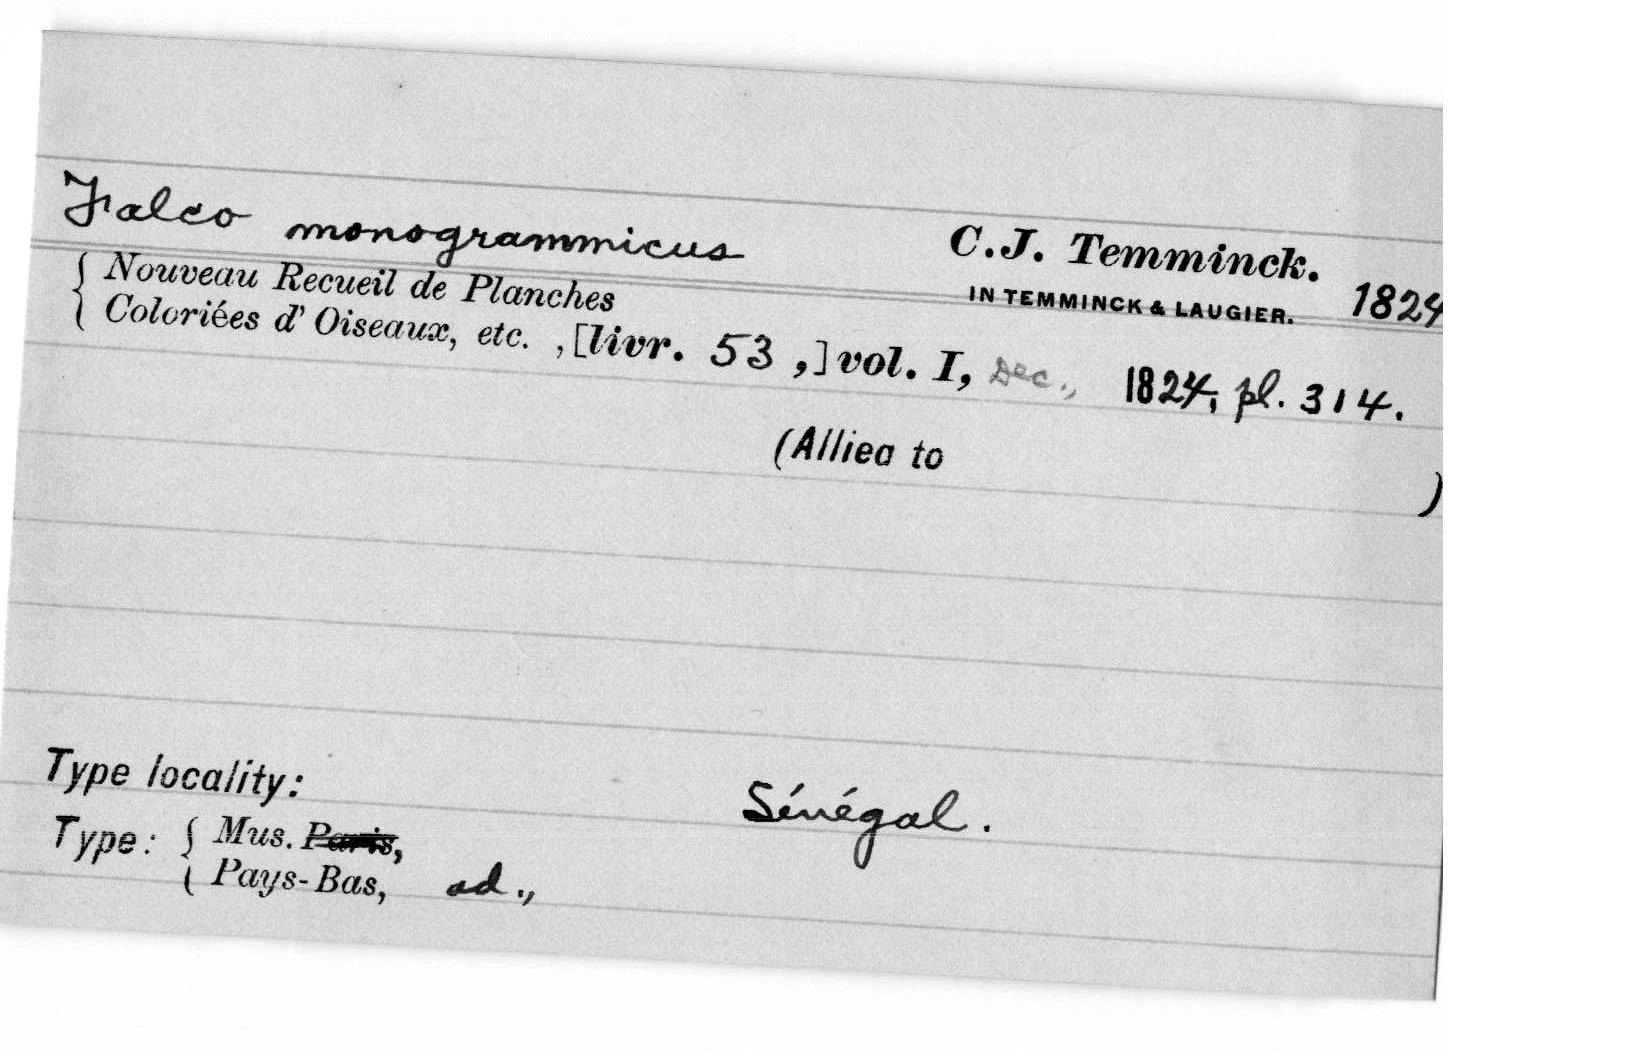 Falco monogrammicus C.J. Temminck.
IN TEMMINCK & LAUGIER. 1824
{ Nouveau Recueil de Planches
{ Coloriées d' Oiseaux, etc. , [livr. 53 ,] vol. I, Dec., 1824, pl. 314.
(Allied to )
Type locality: Sénégal.
Type: { Mus. Paris,
{ Pays-Bas, ad.,